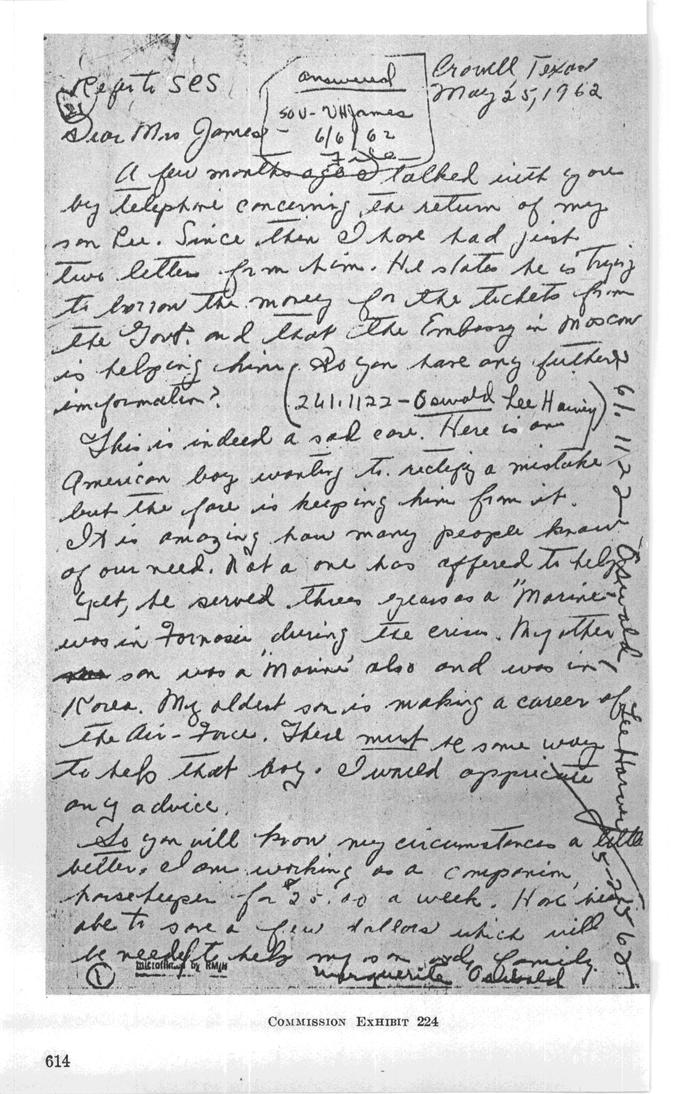 Refer to SCS
answered
SOV-VHJames
6/6/62
File
Crowell, Texas
May 25, 1962
Dear Mrs James -
A few months ago I talked with you
by telephone concerning the return of my
son Lee. Since then I have had just
two letters from him. He states he is trying
to borrow the money for the tickets from
the Govt. and that the Embassy in Moscow
is helping him. Do you have any further
imformation?
(261.1122 - Oswald Lee Harvey)
This is indeed a sad case. Here is an
American boy wanting to rectify a mistake
but the fare is keeping him from it.
It is amazing how many people know
of our need. Not a one has offered to help
Yet, he served three years as a "Marine-
was in Formosa during the crisis. My other
son was a "Marine" also and was in
Korea. My oldest son is making a career of
the Air-Force. There must be some way
to help that boy. I would appriciate
any advice.
So you will know my circumstances a little
better. I am working as a companion,
housekeeper for $25.00 a week. Have been
able to save a few dollars which will
be needed to help my son and family.
Marguerite Oswald
1
microfilmed by RM/R
61.1122 Oswald, Lee Harvey 5-25-62
COMMISSION EXHIBIT 224
614